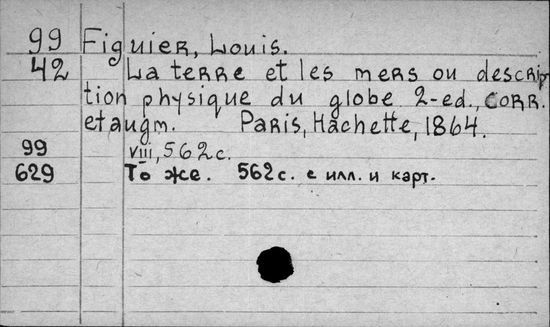 99 Figuier, Louis.
42 La terre et les mers ou descrip
tion physique du globe 2-ed., corr.
et augm. Paris, Hachette, 1864.
99 VIII, 562 с.
629 То же. 562 с. с илл. и карт.